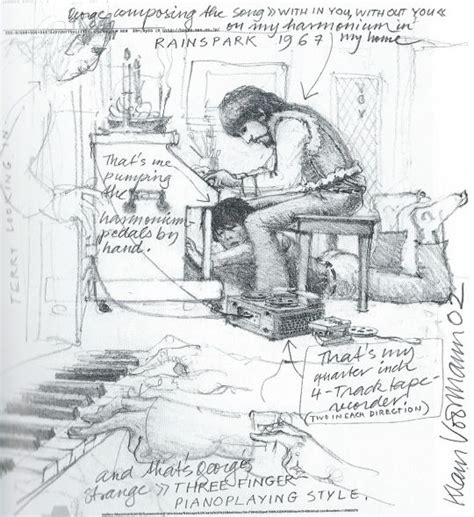 George composing the song » WITH IN YOU, WITHOUT YOU «
on my harmonium in
RAINSPARK 1967 my home
That's me
pumping
the
harmonium-
pedals by
hand.
TERRY LOOKING IN
That's my
quarter inch
4-Track tape-
recorder!
(TWO IN EACH DIRECTION)
and that's Georges
strange » THREE FINGER
PIANOPLAYING STYLE.
Klaus Voormann 02